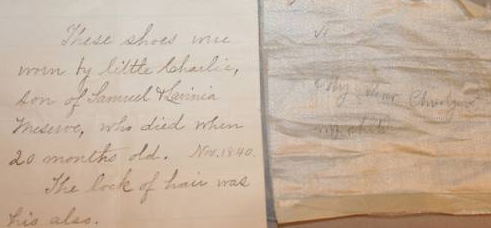 These shoes were
worn by little Charlie,
son of Samuel & Lavinia
Meserve, who died when
20 months old. Nov. 1840.
The lock of hair was
his also.
My dear